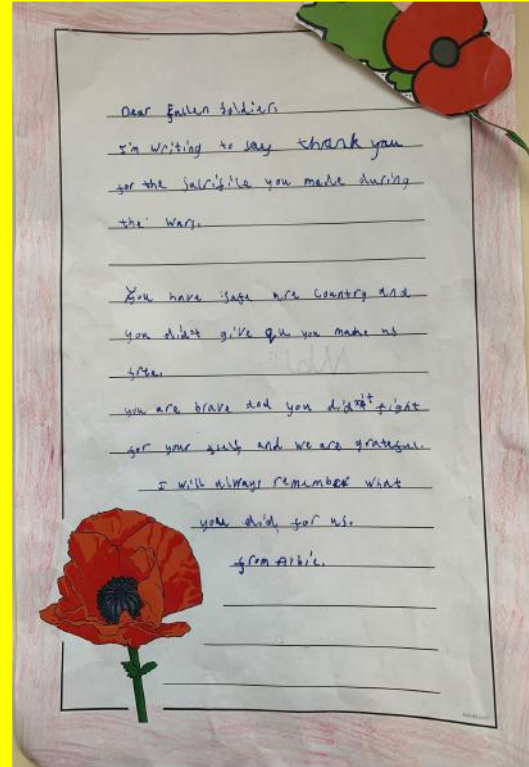 Dear Fallen Soldier,
I'm writing to say thank you
for the sacrifile you made during
the wars.
You have safe are country and
you didnt give qu you made us
free.
you are brave and you didn't fight
for your self and we are grateful.
I will always remember what
you did for us.
from Albie.